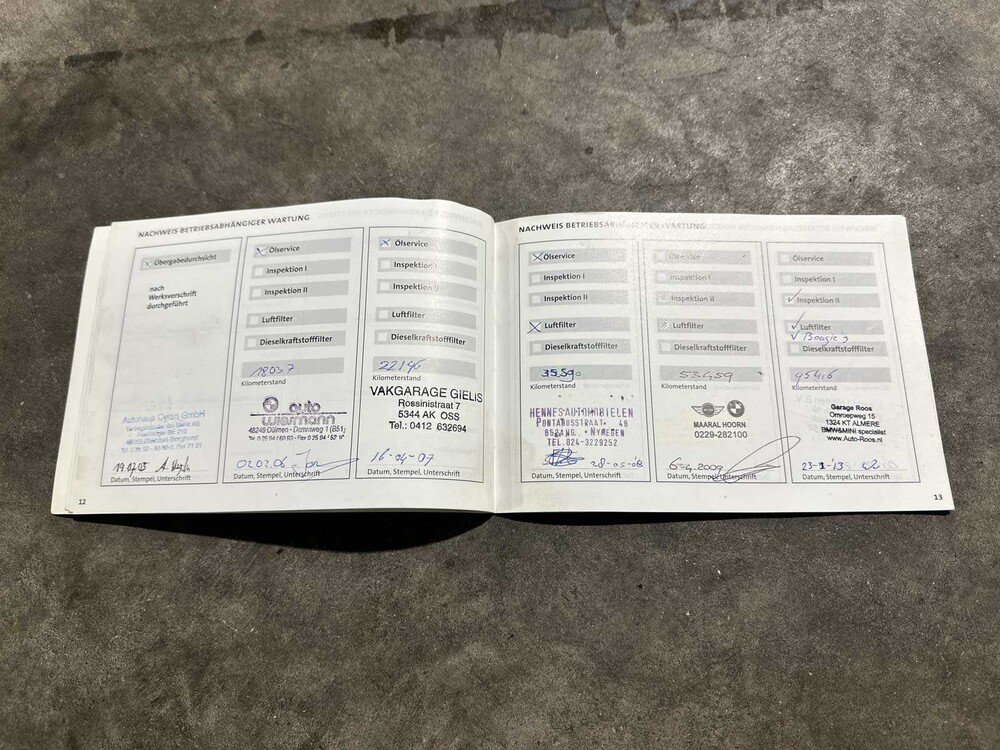 NACHWEIS BETRIEBSABHÄNGIGER WARTUNG
Übergabedurchsicht
nach
Werksvorschrift
durchgeführt
Autohaus GmbH
19.07.05
Datum, Stempel, Unterschrift
Ölservice
Inspektion I
Inspektion II
Luftfilter
Dieselkraftstofffilter
18037
Kilometerstand
auto
wiesmann
48249 Dülmen - Damweg 1 (B51)
02.02.06
Datum, Stempel, Unterschrift
Ölservice
Inspektion I
Inspektion II
Luftfilter
Dieselkraftstofffilter
22146
Kilometerstand
VAKGARAGE GIELIS
Rossinistraat 7
5344 AK OSS
Tel.: 0412 632694
16-04-07
Datum, Stempel, Unterschrift
12
NACHWEIS BETRIEBSABHÄNGIGER WARTUNG
Ölservice
Inspektion I
Inspektion II
Luftfilter
Dieselkraftstofffilter
35590
Kilometerstand
HENNES AUTOMOBIELEN
TEL.024-3229252
28-05-08
Datum, Stempel, Unterschrift
Ölservice
Inspektion I
Inspektion II
Luftfilter
Dieselkraftstofffilter
53459
Kilometerstand
MINI BMW
MAARAL HOORN
0229-282100
6-4-2009
Datum, Stempel, Unterschrift
Ölservice
Inspektion I
Inspektion II
Luftfilter
Bougie's
Dieselkraftstofffilter
Kilometerstand
Garage Roos
Omroepweg 15
1324 KT ALMERE
BMW&MINI specialist
www.Auto-Roos.nl
23-1-'13
Datum, Stempel, Unterschrift
13